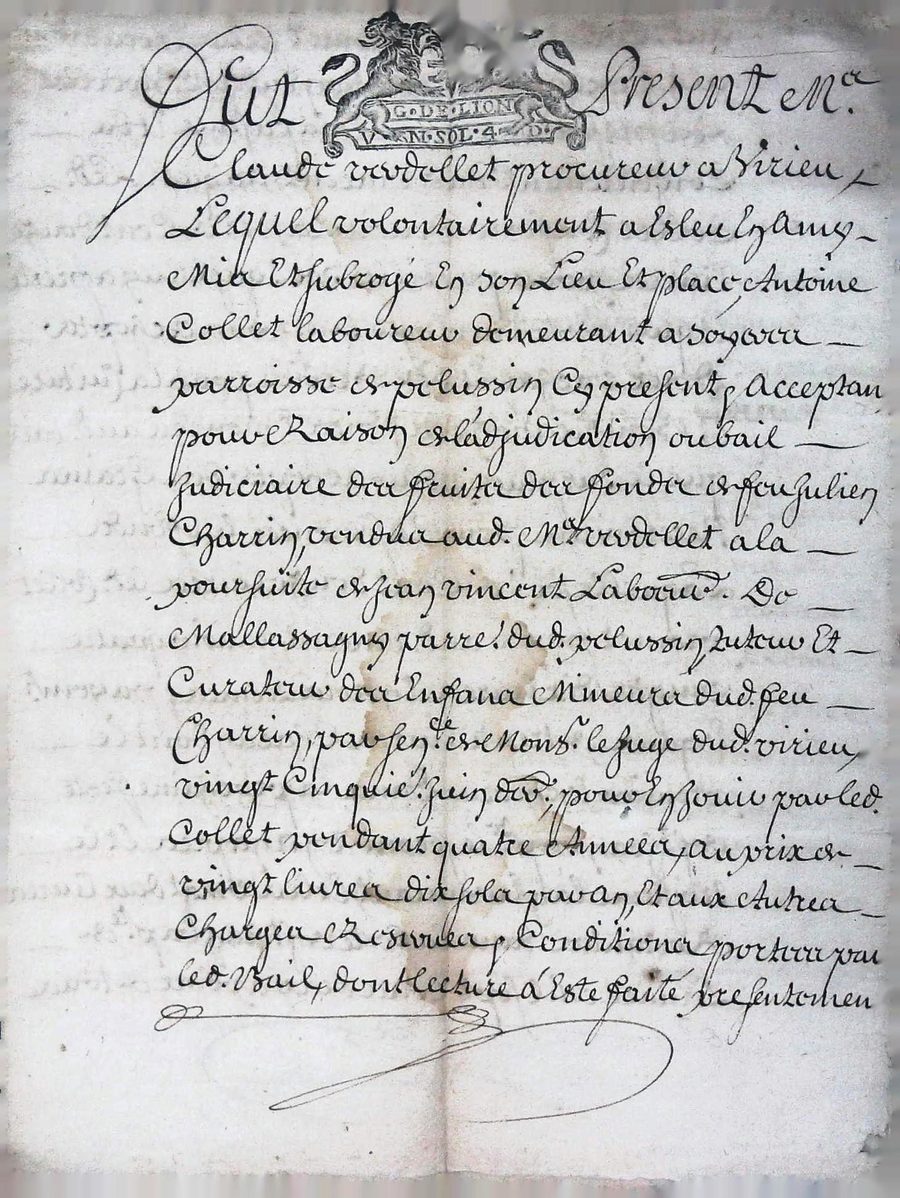 G. DE. LION
V N. SOL. 4 D.
Fut Present Me.
Claude verdellet procureur a Virieu
Lequel volontairement a Esleu En Amy
Mis Et subrogé En son Lieu Et place, Antoine
Collet laboureur demeurant a Soyeres
parroisse de pelussin Cy present, & Acceptan
pour Raison de l'adjudication ou bail
Judiciaire des fruits des fonds de feu Julien
Charrin, vendus aud. Me. verdellet a la
poursuite de Jean vincent Laboure. De
Mallassagny parre. dud. pelussin, tuteur Et
Curateur des Enfans Mineurs dud. feu
Charrin, par sence. de Monsr. le Juge dud. virieu,
vingt Cinquie. Juin der., pour En Jouir par led.
Collet pendant quatre Années, au prix de
vingt livres dix sols par an, Et aux Autres
Charges Reserves, & Conditions portees par
led. Bail, dont lecture á Esté faite presentemen